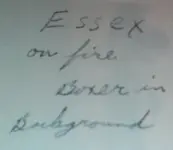 Essex
on fire
Boxer in
Background